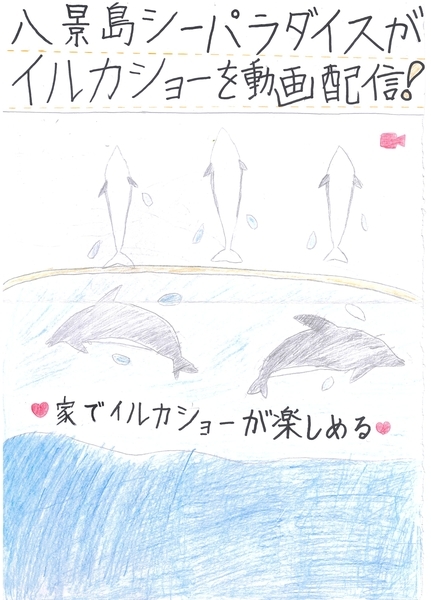 八景島シーパラダイスが
イルカショーを動画配信!
家でイルカショーが楽しめる